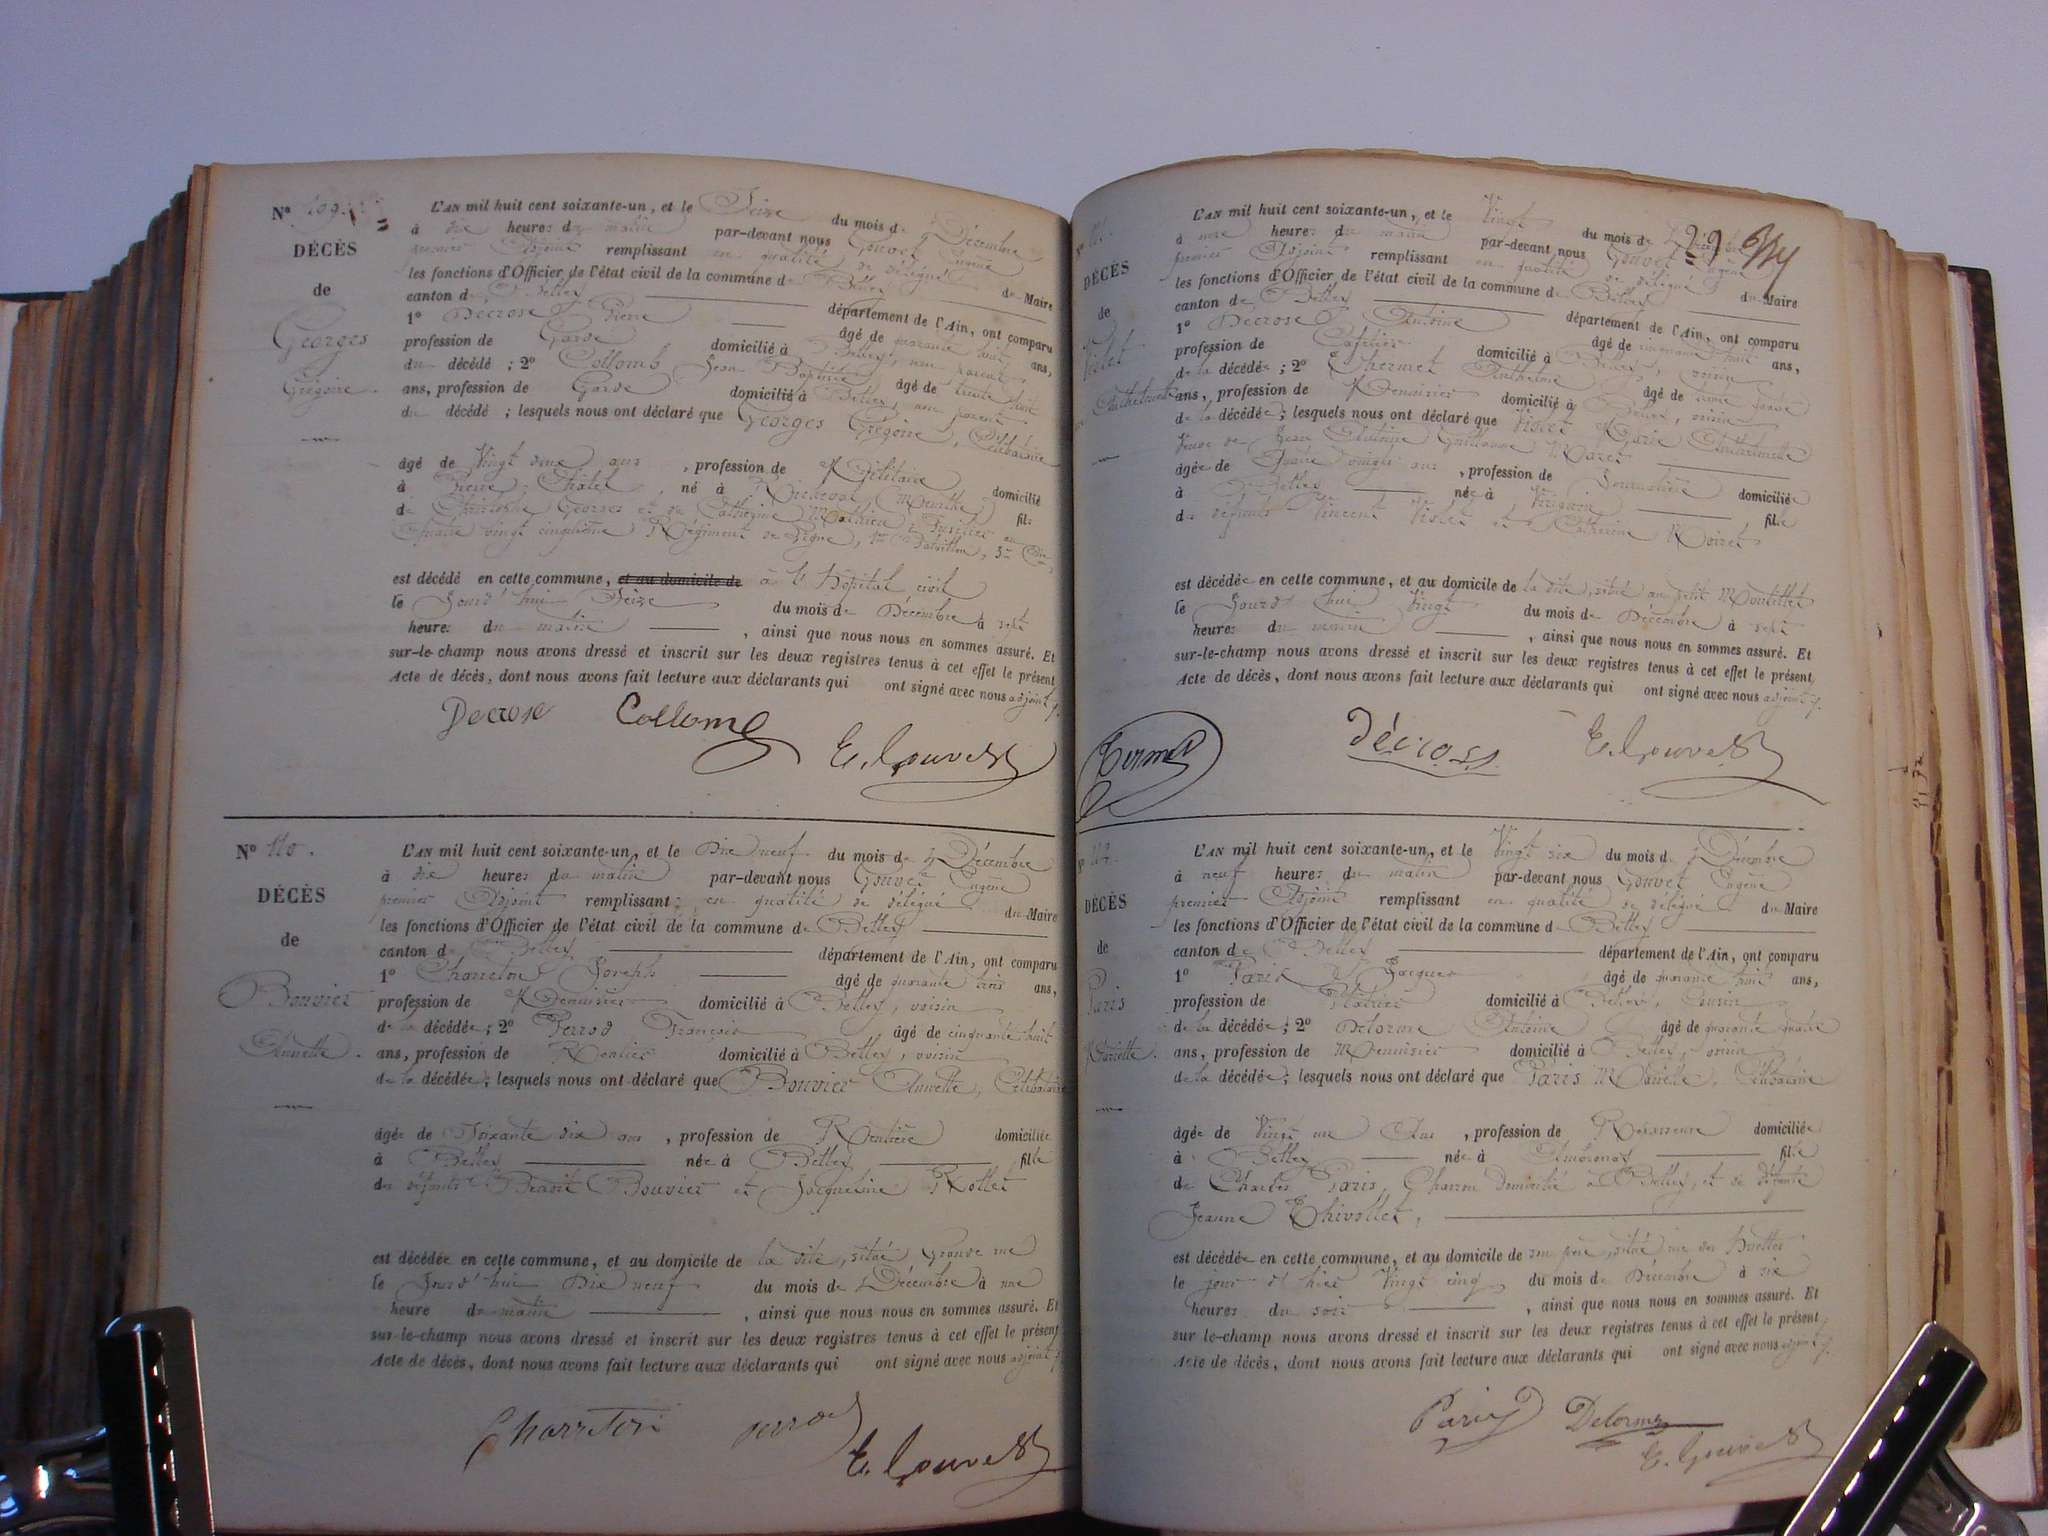 N° 109.
DÉCÈS
de
Georges
Grégoire.
L'AN mil huit cent soixante-un, et le Seize du mois de Décembre
à dix heures du matin par-devant nous Gouvet Eugène
premier Adjoint remplissant en qualité de délégué du Maire
les fonctions d'Officier de l'état civil de la commune de Belley
canton de Belley département de l'Ain, ont comparu
1° Decrose Pierre âgé de quarante huit ans,
profession de Garde domicilié à Belley, non parent
du décédé ; 2° Collomb Jean Baptiste âgé de trente huit
ans, profession de Garde domicilié à Belley, non parent
du décédé ; lesquels nous ont déclaré que Georges Grégoire, Célibataire
âgé de Vingt deux ans , profession de Militaire domicilié
à Pierre-Châtel, né à Richeval (Meurthe) fils
de Christophe Georges et de Catherine Mathieu, Fusilier au
Quatre vingt cinquième Régiment de Ligne, 1er Bataillon, 3me Cie,
est décédé en cette commune, et au domicile de à l'hôpital civil
le Jourd'hui Seize du mois de Décembre à sept
heures du matin , ainsi que nous nous en sommes assuré. Et
sur-le-champ nous avons dressé et inscrit sur les deux registres tenus à cet effet le présent
Acte de décès, dont nous avons fait lecture aux déclarants qui ont signé avec nous adjoint
Decrose Collomb E. Gouvet
N° 110.
DÉCÈS
de
Bouvier
Annette.
L'AN mil huit cent soixante-un, et le Dix neuf du mois de Décembre
à dix heures du matin par-devant nous Gouvet Eugène
premier Adjoint remplissant en qualité de délégué du Maire
les fonctions d'Officier de l'état civil de la commune de Belley
canton de Belley département de l'Ain, ont comparu
1° Charreton Joseph âgé de quarante trois ans,
profession de Menuisier domicilié à Belley, voisin
de la décédée ; 2° Perrod François âgé de cinquante huit
ans, profession de Rentier domicilié à Belley, voisin
de la décédée ; lesquels nous ont déclaré que Bouvier Annette, Célibataire
âgée de Soixante dix ans , profession de Rentière domiciliée
à Belley née à Belley fille
de défunts Benoit Bouvier et Jacqueline Rollet
est décédée en cette commune, et au domicile de la dite, situé Grande rue
le Jourd'hui Dix neuf du mois de Décembre à une
heure du matin , ainsi que nous nous en sommes assuré. Et
sur-le-champ nous avons dressé et inscrit sur les deux registres tenus à cet effet le présent
Acte de décès, dont nous avons fait lecture aux déclarants qui ont signé avec nous adjoint
Charreton perrod E. Gouvet
29
N° 111.
DÉCÈS
de
Violet
Antheلمette
L'AN mil huit cent soixante-un, et le Vingt du mois de Décembre
à onze heures du matin par-devant nous Gouvet Eugène
premier Adjoint remplissant en qualité de délégué du Maire
les fonctions d'Officier de l'état civil de la commune de Belley
canton de Belley département de l'Ain, ont comparu
1° Decrose Antoine âgé de cinquante huit ans,
profession de Cafetier domicilié à Belley, voisin
de la décédée ; 2° Thermet Anthelme âgé de
ans, profession de Menuisier domicilié à Belley, voisin
de la décédée ; lesquels nous ont déclaré que Violet Marie Anthelmette
Veuve de Jean Antoine Guillaume
âgée de Quatre vingts ans , profession de Journalière domiciliée
à Belley née à Virignin fille
de défunts Vincent Violet et Catherine Moiret
est décédée en cette commune, et au domicile de la dite, situé au petit Moutillet
le Jourd'hui Vingt du mois de Décembre à sept
heures du matin , ainsi que nous nous en sommes assuré. Et
sur-le-champ nous avons dressé et inscrit sur les deux registres tenus à cet effet le présent
Acte de décès, dont nous avons fait lecture aux déclarants qui ont signé avec nous adjoint
Termet Décross E. Gouvet
N° 112.
DÉCÈS
de
Paris
Mariette.
L'AN mil huit cent soixante-un, et le Vingt six du mois de Décembre
à neuf heures du matin par-devant nous Gouvet Eugène
premier Adjoint remplissant en qualité de délégué du Maire
les fonctions d'Officier de l'état civil de la commune de Belley
canton de Belley département de l'Ain, ont comparu
1° Paris Jacques âgé de quarante huit ans,
profession de Plâtrier domicilié à Belley, cousin
de la décédée ; 2° Delorme Antoine âgé de quarante quatre
ans, profession de Menuisier domicilié à Belley, voisin
de la décédée ; lesquels nous ont déclaré que Paris Mariette, Célibataire
âgée de Vingt un Ans , profession de Repasseuse domiciliée
à Belley née à Ambronay fille
de Charles Paris, Charron domicilié à Belley, et de défunte
Jeanne Chivollet,
est décédée en cette commune, et au domicile de son père, situé rue des
le jour d'hier Vingt cinq du mois de Décembre à six
heures du soir , ainsi que nous nous en sommes assuré. Et
sur-le-champ nous avons dressé et inscrit sur les deux registres tenus à cet effet le présent
Acte de décès, dont nous avons fait lecture aux déclarants qui ont signé avec nous adjoint
Paris Delorme E. Gouvet